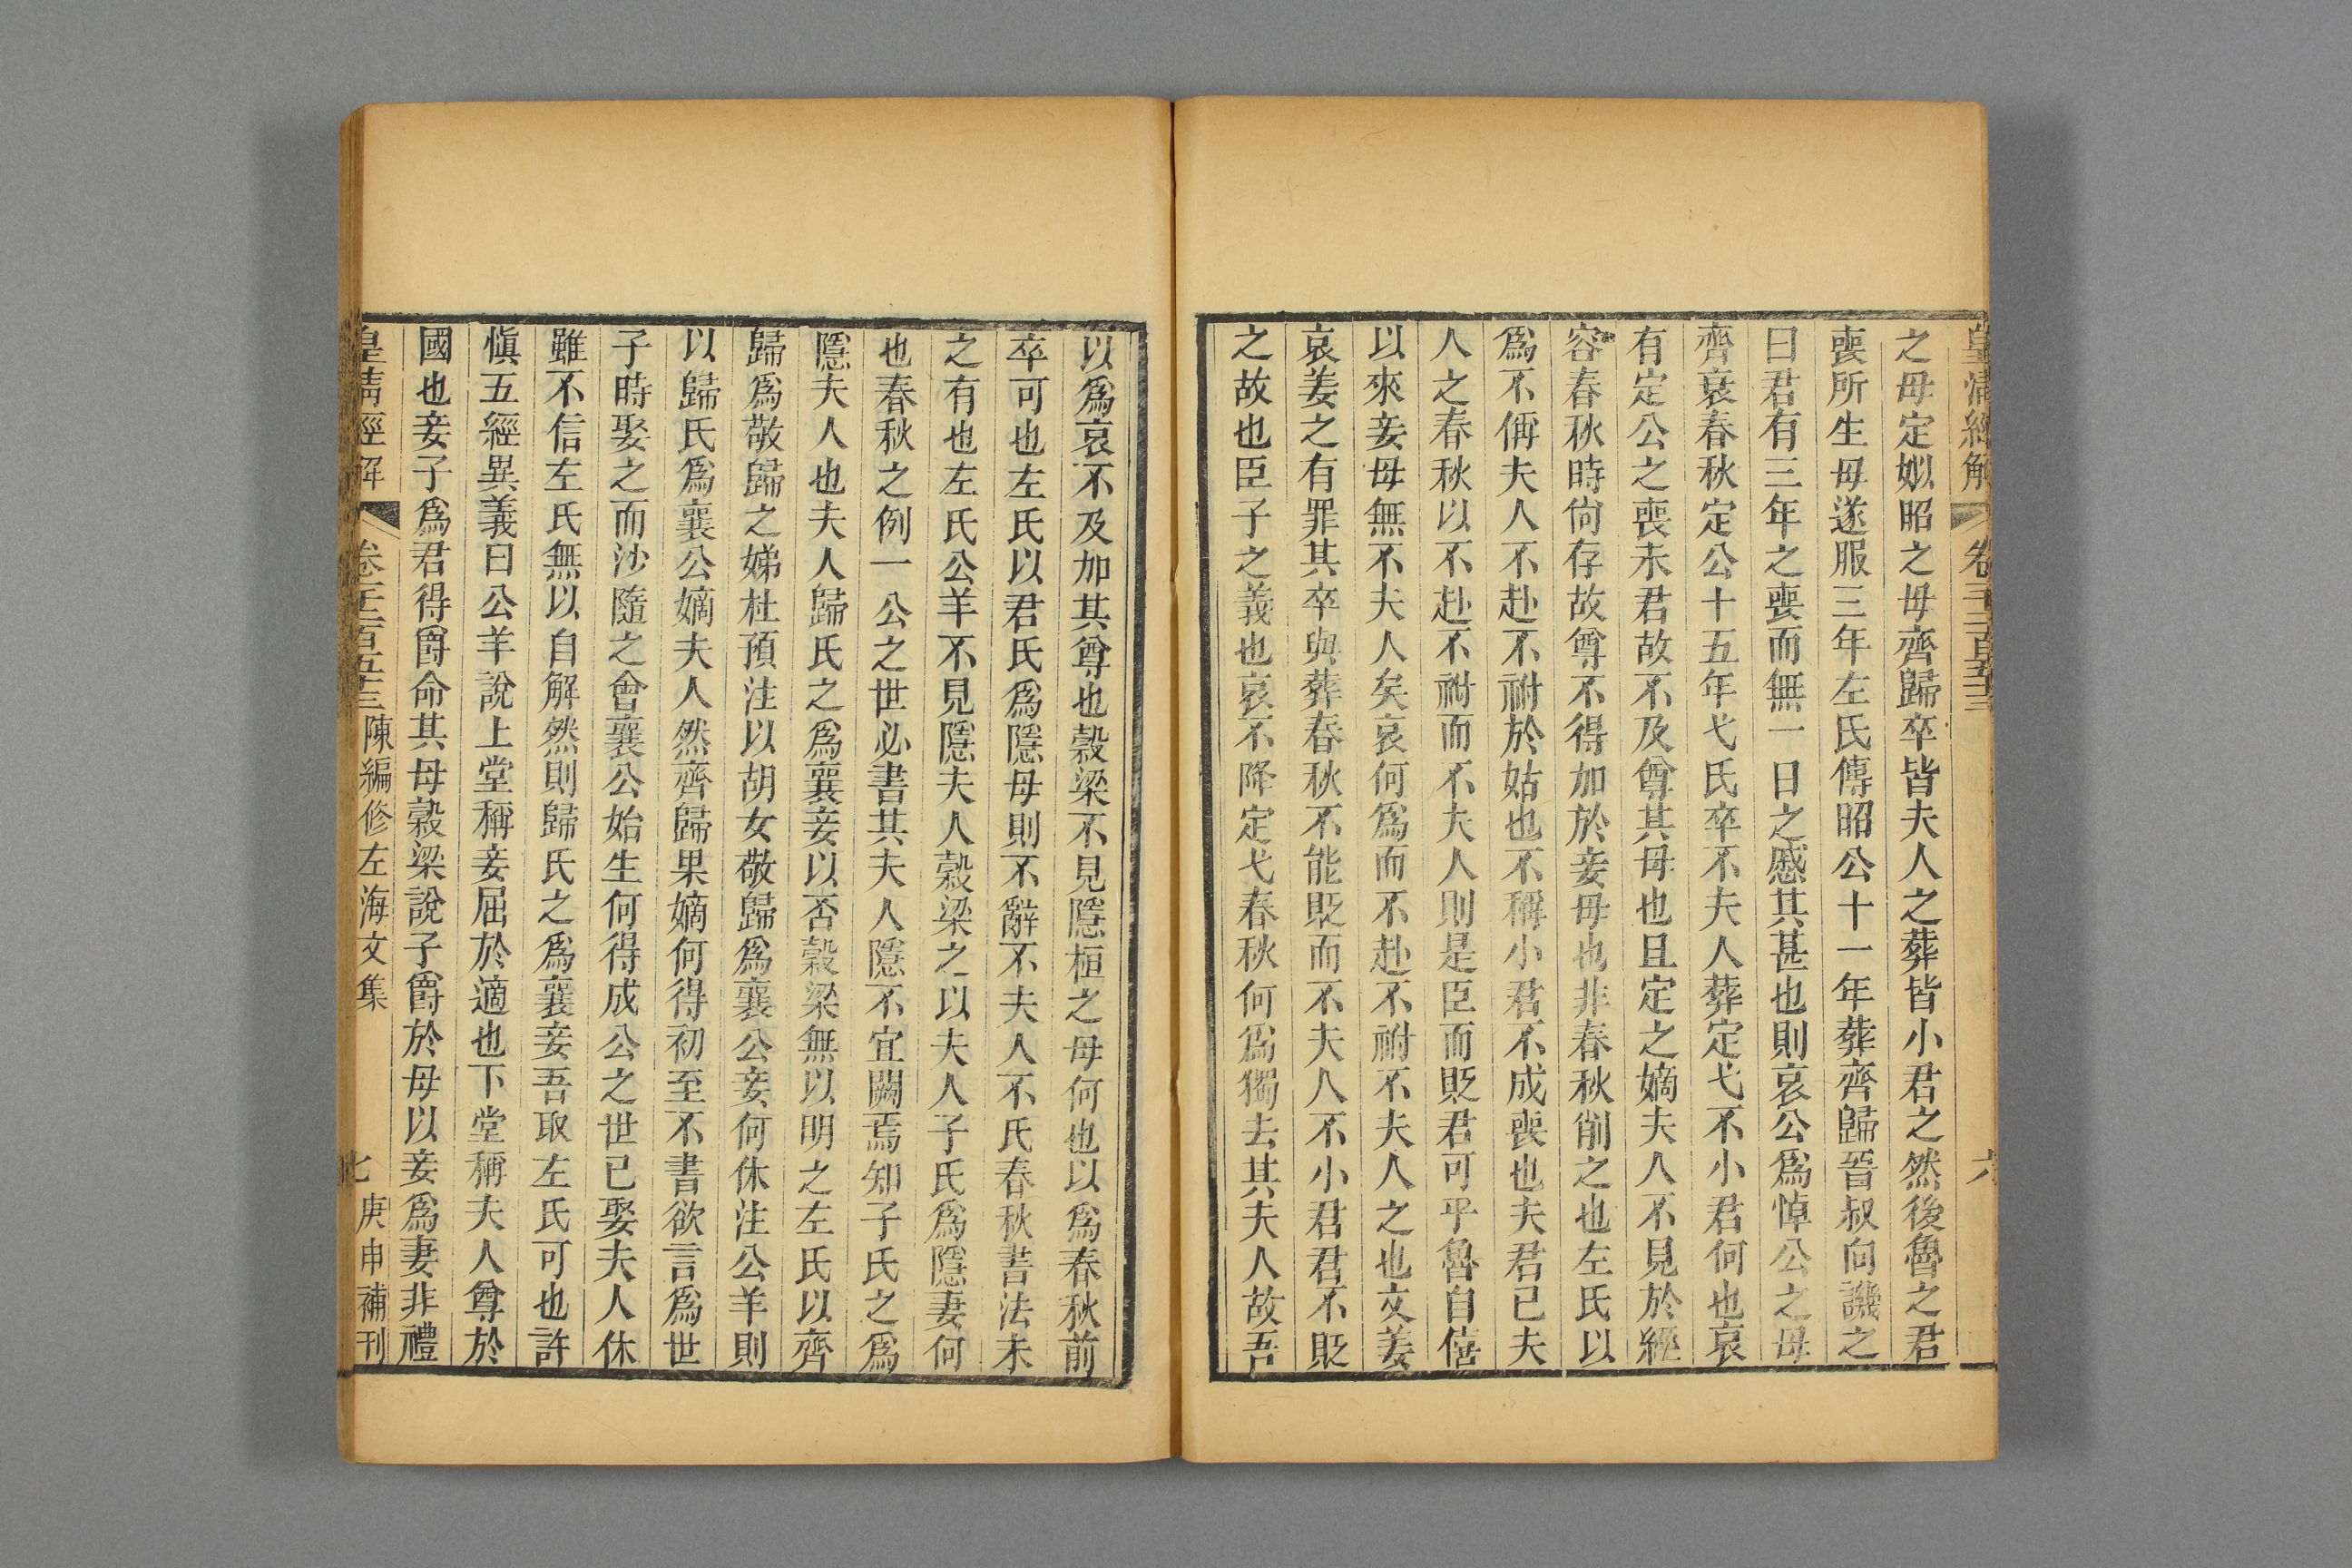 皇清經解 卷千二百五十三 六
之母定姒昭之母齊歸卒皆夫人之葬皆小君之然後魯之君
喪所生母遂服三年左氏傳昭公十一年葬齊歸晉叔向譏之
曰君有三年之喪而無一日之慼其甚也則哀公爲悼公之母
齊衰春秋定公十五年弋氏卒不夫人葬定弋不小君何也哀
有定公之喪未君故不及尊其母也且定之嫡夫人不見於經
容春秋時尙存故尊不得加於妾母也非春秋削之也左氏以
爲不偁夫人不赴不祔於姑也不稱小君不成喪也夫君已夫
人之春秋以不赴不祔而不夫人則是臣而貶君可乎魯自僖
以來妾母無不夫人矣哀何爲而不赴不祔不夫人之也文姜
哀姜之有罪其卒與葬春秋不能貶而不夫人不小君君不貶
之故也臣子之義也哀不降定弋春秋何爲獨去其夫人故吾
以爲哀不及加其尊也穀梁不見隱桓之母何也以爲春秋前
卒可也左氏以君氏爲隱母則不辭不夫人不氏春秋書法未
之有也左氏公羊不見隱夫人穀梁之以夫人子氏爲隱妻何
也春秋之例一公之世必書其夫人隱不宜闕焉知子氏之爲
隱夫人也夫人歸氏之爲襄妾以否穀梁無以明之左氏以齊
歸爲敬歸之娣杜預注以胡女敬歸爲襄公妾何休注公羊則
以歸氏爲襄公嫡夫人然齊歸果嫡何得初至不書欲言爲世
子時娶之而沙隨之會襄公始生何得成公之世已娶夫人休
雖不信左氏無以自解然則歸氏之爲襄妾吾取左氏可也許
愼五經異義曰公羊說上堂稱妾屈於適也下堂稱夫人尊於
國也妾子爲君得爵命其母穀梁說子爵於母以妾爲妻非禮
皇清經解 卷千二百五十三 陳編修左海文集 七 庚申補刊